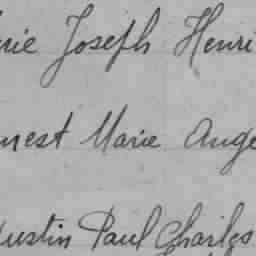 rie Joseph Henri
nest Marie Ange
ustin Paul Charles